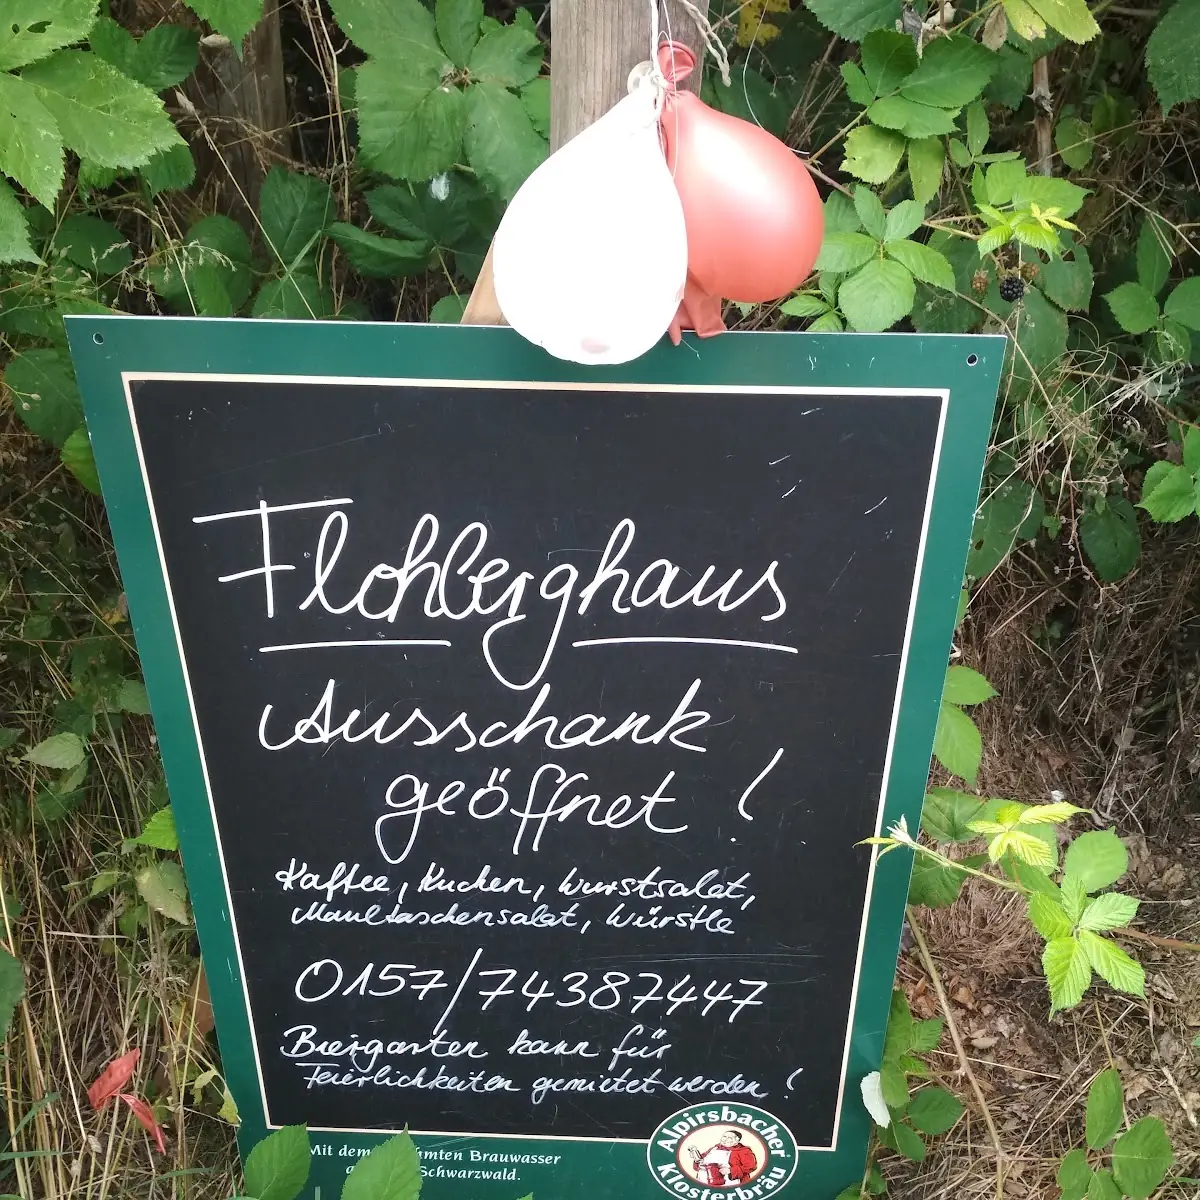 Flohberghaus
Ausschank
geöffnet !
Kaffee, Kuchen, Wurstsalat,
Maultaschensalat, Würstle
0157/74387447
Biergarten kann für
Feierlichkeiten gemietet werden !
Mit dem Brauwasser
Schwarzwald.
Alpirsbacher
Klosterbräu